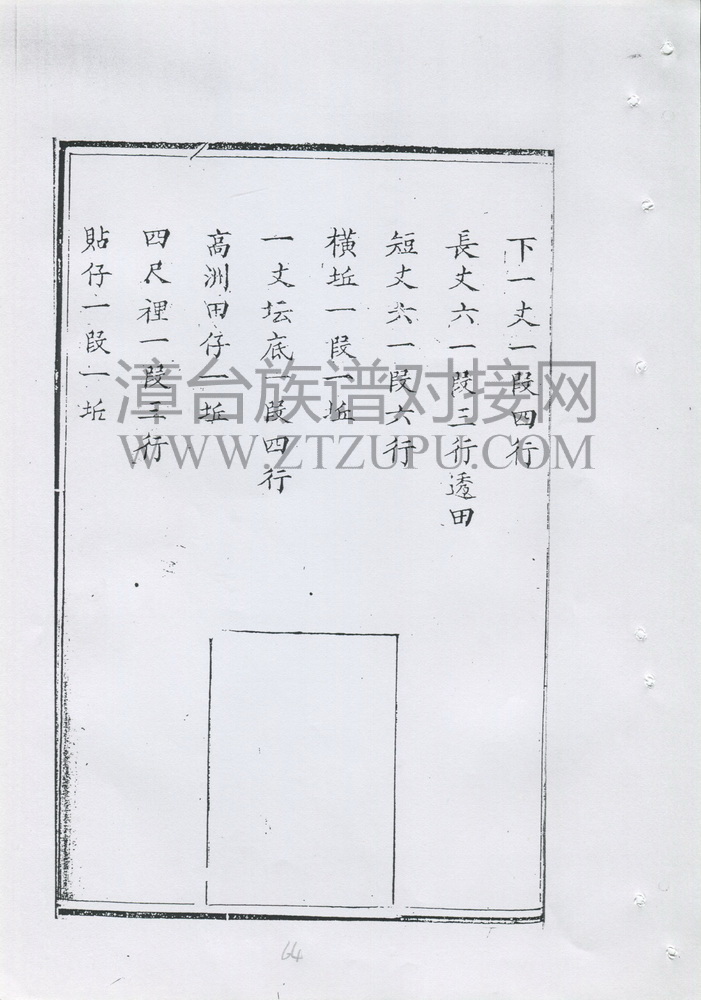 下一丈一段四行
長丈六一段三行透田
短丈六一段六行
橫坵一段一坵
一丈坛底一段四行
高洲田仔一坵
四尺裡一段三行
貼仔一段一坵
漳台族谱对接网
WWW.ZTZUPU.COM
64